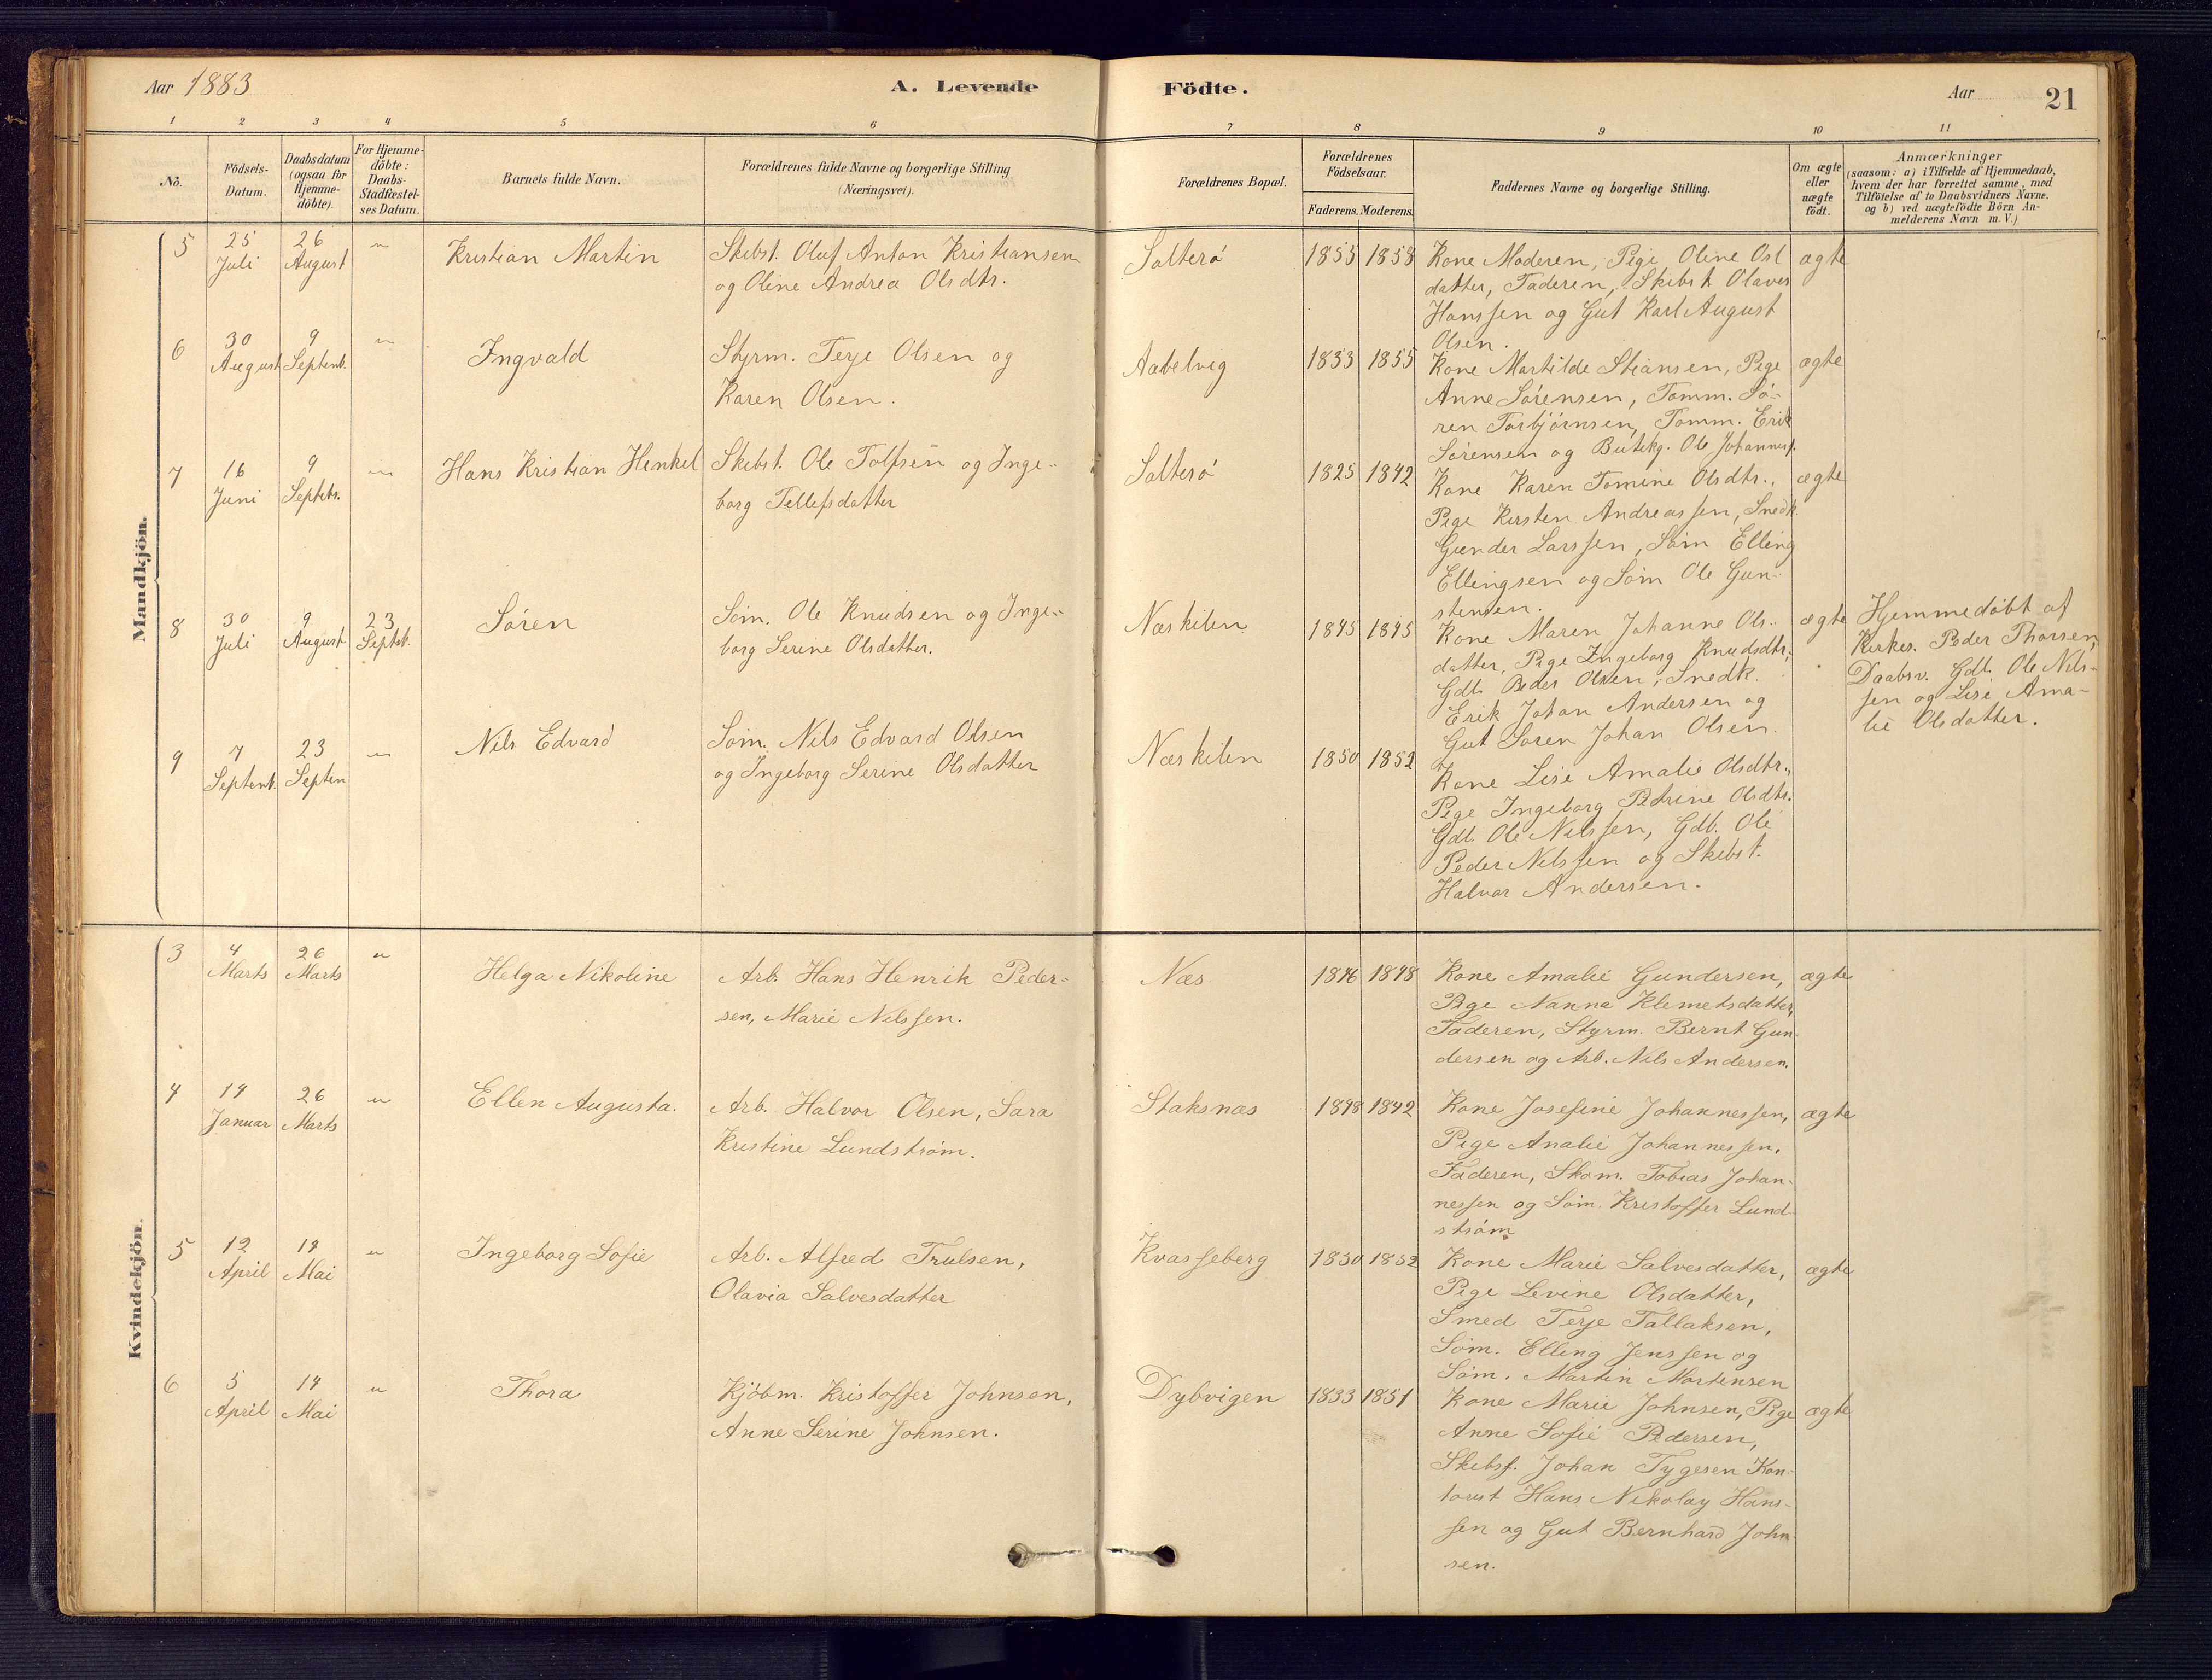 Aar 1883
A. Levende
Födte.
Aar
21
1 2 3 4 5 6 7 8 9 10 11
No.
Födsels-
Datum.
Daabsdatum
(ogsaa for
Hjemme-
döbte).
For Hjemme-
döbte:
Daabs-
Stadfæstel-
ses Datum.
Barnets fulde Navn.
Forældrenes fulde Navne og borgerlige Stilling
(Næringsvei).
Forældrenes Bopæl.
Forældrenes
Födselsaar.
Faderens. Moderens.
Faddernes Navne og borgerlige Stilling.
Om ægte
eller
uægte
födt.
Anmærkninger
(saasom: a) i Tilfælde af Hjemmedaab,
hvem der har forrettet samme, med
Tilföielse af to Daabsvidners Navne,
og b) ved uægtefödte Börn An-
melderens Navn m. V.)
Mandkjön.
5
25
Juli
26
August
"
Kristian Martin
Skibst. Oluf Anton Kristiansen
og Oline Andrea Olsdtr.
Salterø
1855 1858
Kone Moderen, Pige Oline Osl
datter, Faderen, Skibst. Olaves
Hanssen og Gut Karl August
Olsen.
ægte
6
30
August
9
Septemb.
"
Ingvald
Styrm. Terje Olsen og
Karen Olsen.
Aabelvig
1853 1855
Kone Martilde Stiansen, Pige
Anne Sørensen, Tømm. Sø-
ren Torbjørnsen, Tømm. Erik
Sørensen og Butikg. Ole Johanness.
ægte
7
16
Juni
9
Septebr.
"
Hans Kristian Henkel
Skibst. Ole Tolfsen og Inge-
borg Tellefsdatter
Salterø
1825 1842
Kone Karen Tomine Olsdtr.,
Pige Kirsten Andreassen, Snedk.
Gunder Larssen, Søm Elling
Ellingsen og Søm Ole Gun-
stensen.
ægte
8
30
Juli
9
August
23
Septbr.
Søren
Søm. Ole Knudsen og Inge-
borg Serine Olsdatter.
Næskilen
1845 1845
Kone Maren Johanne Ols-
datter, Pige Ingeborg Knudsdtr,
Gdb. Peder Olsen, Snedk.
Erik Johan Andersen og
Gut Søren Johan Olsen.
ægte
Hjemmedøbt af
Kirkes. Peder Thorsen,
Daabsv. Gdb. Ole Nils-
sen og Lise Ama-
lie Olsdatter.
9
7
Septemb.
23
Septem
"
Nils Edvard
Søm. Nils Edvard Olsen
og Ingeborg Serine Olsdatter
Næskilen
1850 1852
Kone Lise Amalie Olsdtr.,
Pige Ingeborg Petrine Olsdtr.
Gdb. Ole Nilssen, Gdb. Ole
Peder Nilssen og Skibst.
Halvor Andersen.
Kvindekjön.
3
4
Marts
26
Marts
"
Helga Nikoline
Arb. Hans Henrik Peder-
sen, Marie Nilssen.
Næs
1846 1848
Kone Amalie Gundersen,
Pige Nanna Klemetsdatter,
Faderen, Styrm. Bernt Gun-
dersen og Arb. Nils Andersen.
ægte
4
14
Januar
26
Marts
"
Ellen Augusta.
Arb. Halvor Olsen, Sara
Kristine Lundstrøm.
Staksnæs
1848 1842
Kone Josefine Johannessen,
Pige Analie Johannessen,
Faderen, Skom. Tobias Johan-
nessen og Søm. Kristoffer Lund-
strøm
ægte
5
12
April
14
Mai
"
Ingeborg Sofie
Arb. Alfred Trulsen,
Olavia Salvesdatter
Kvasseberg
1850 1852
Kone Marie Salvesdatter,
Pige Levine Olsdatter,
Smed Terje Tallaksen,
Søm. Elling Jenssen og
Søm. Martin Mortensen
ægte
6
5
April
14
Mai
"
Thora
Kjöbm. Kristoffer Johnsen,
Anne Serine Johnsen.
Dybvigen
1833 1851
Kone Marie Johnsen, Pige
Anne Sofie Pedersen,
Skibsf. Johan Tygesen Kon-
torist Hans Nikolay Hans-
sen og Gut Bernhard John-
sen.
ægte